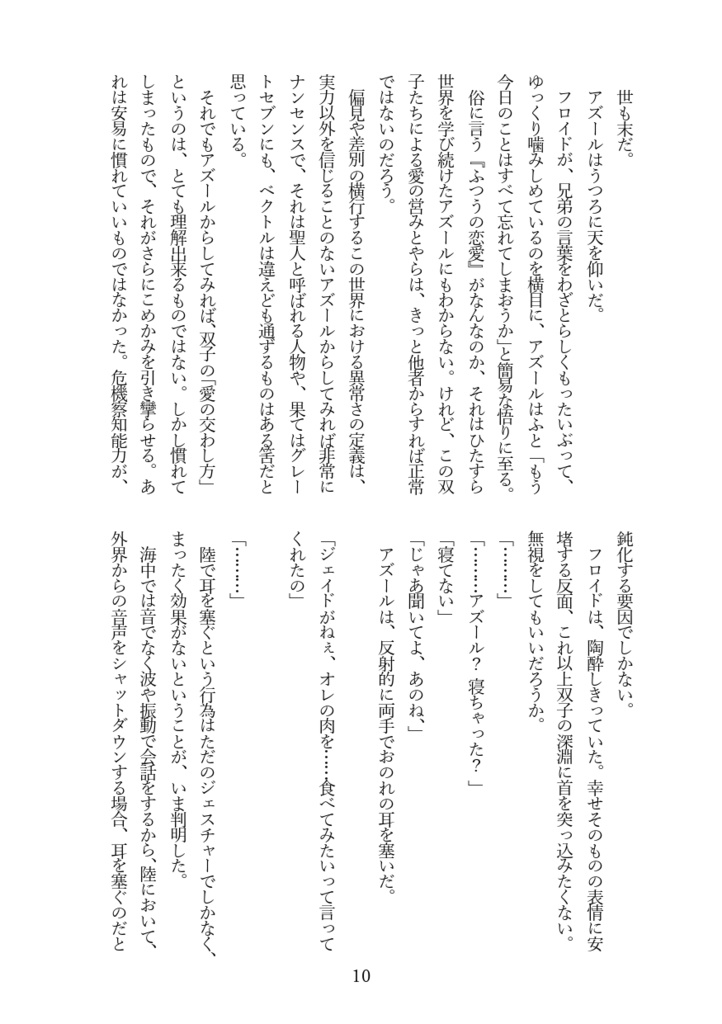 世も末だ。
アズールはうつろに天を仰いだ。
フロイドが、兄弟の言葉をわざとらしくもったいぶって、
ゆっくり噛みしめているのを横目に、アズールはふと「もう
今日のことはすべて忘れてしまおうか」と簡易な悟りに至る。
俗に言う『ふつうの恋愛』がなんなのか、それはひたすら
世界を学び続けたアズールにもわからない。けれど、この双
子たちによる愛の営みとやらは、きっと他者からすれば正常
ではないのだろう。
偏見や差別の横行するこの世界における異常さの定義は、
実力以外を信じることのないアズールからしてみれば非常に
ナンセンスで、それは聖人と呼ばれる人物や、果てはグレー
トセブンにも、ベクトルは違えども通ずるものはある筈だと
思っている。
それでもアズールからしてみれば、双子の「愛の交わし方」
というのは、とても理解出来るものではない。しかし慣れて
しまったもので、それがさらにこめかみを引き攣らせる。あ
れは安易に慣れていいものではなかった。危機察知能力が、
鈍化する要因でしかない。
フロイドは、陶酔しきっていた。幸せそのものの表情に安
堵する反面、これ以上双子の深淵に首を突っ込みたくない。
無視をしてもいいだろうか。
「………」
「………アズール？ 寝ちゃった？ 」
「寝てない」
「じゃあ聞いてよ、あのね、」
アズールは、反射的に両手でおのれの耳を塞いだ。
「ジェイドがねぇ、オレの肉を……食べてみたいって言って
くれたの」
「………」
陸で耳を塞ぐという行為はただのジェスチャーでしかなく、
まったく効果がないということが、いま判明した。
海中では音でなく波や振動で会話をするから、陸において、
外界からの音声をシャットダウンする場合、耳を塞ぐのだと
10